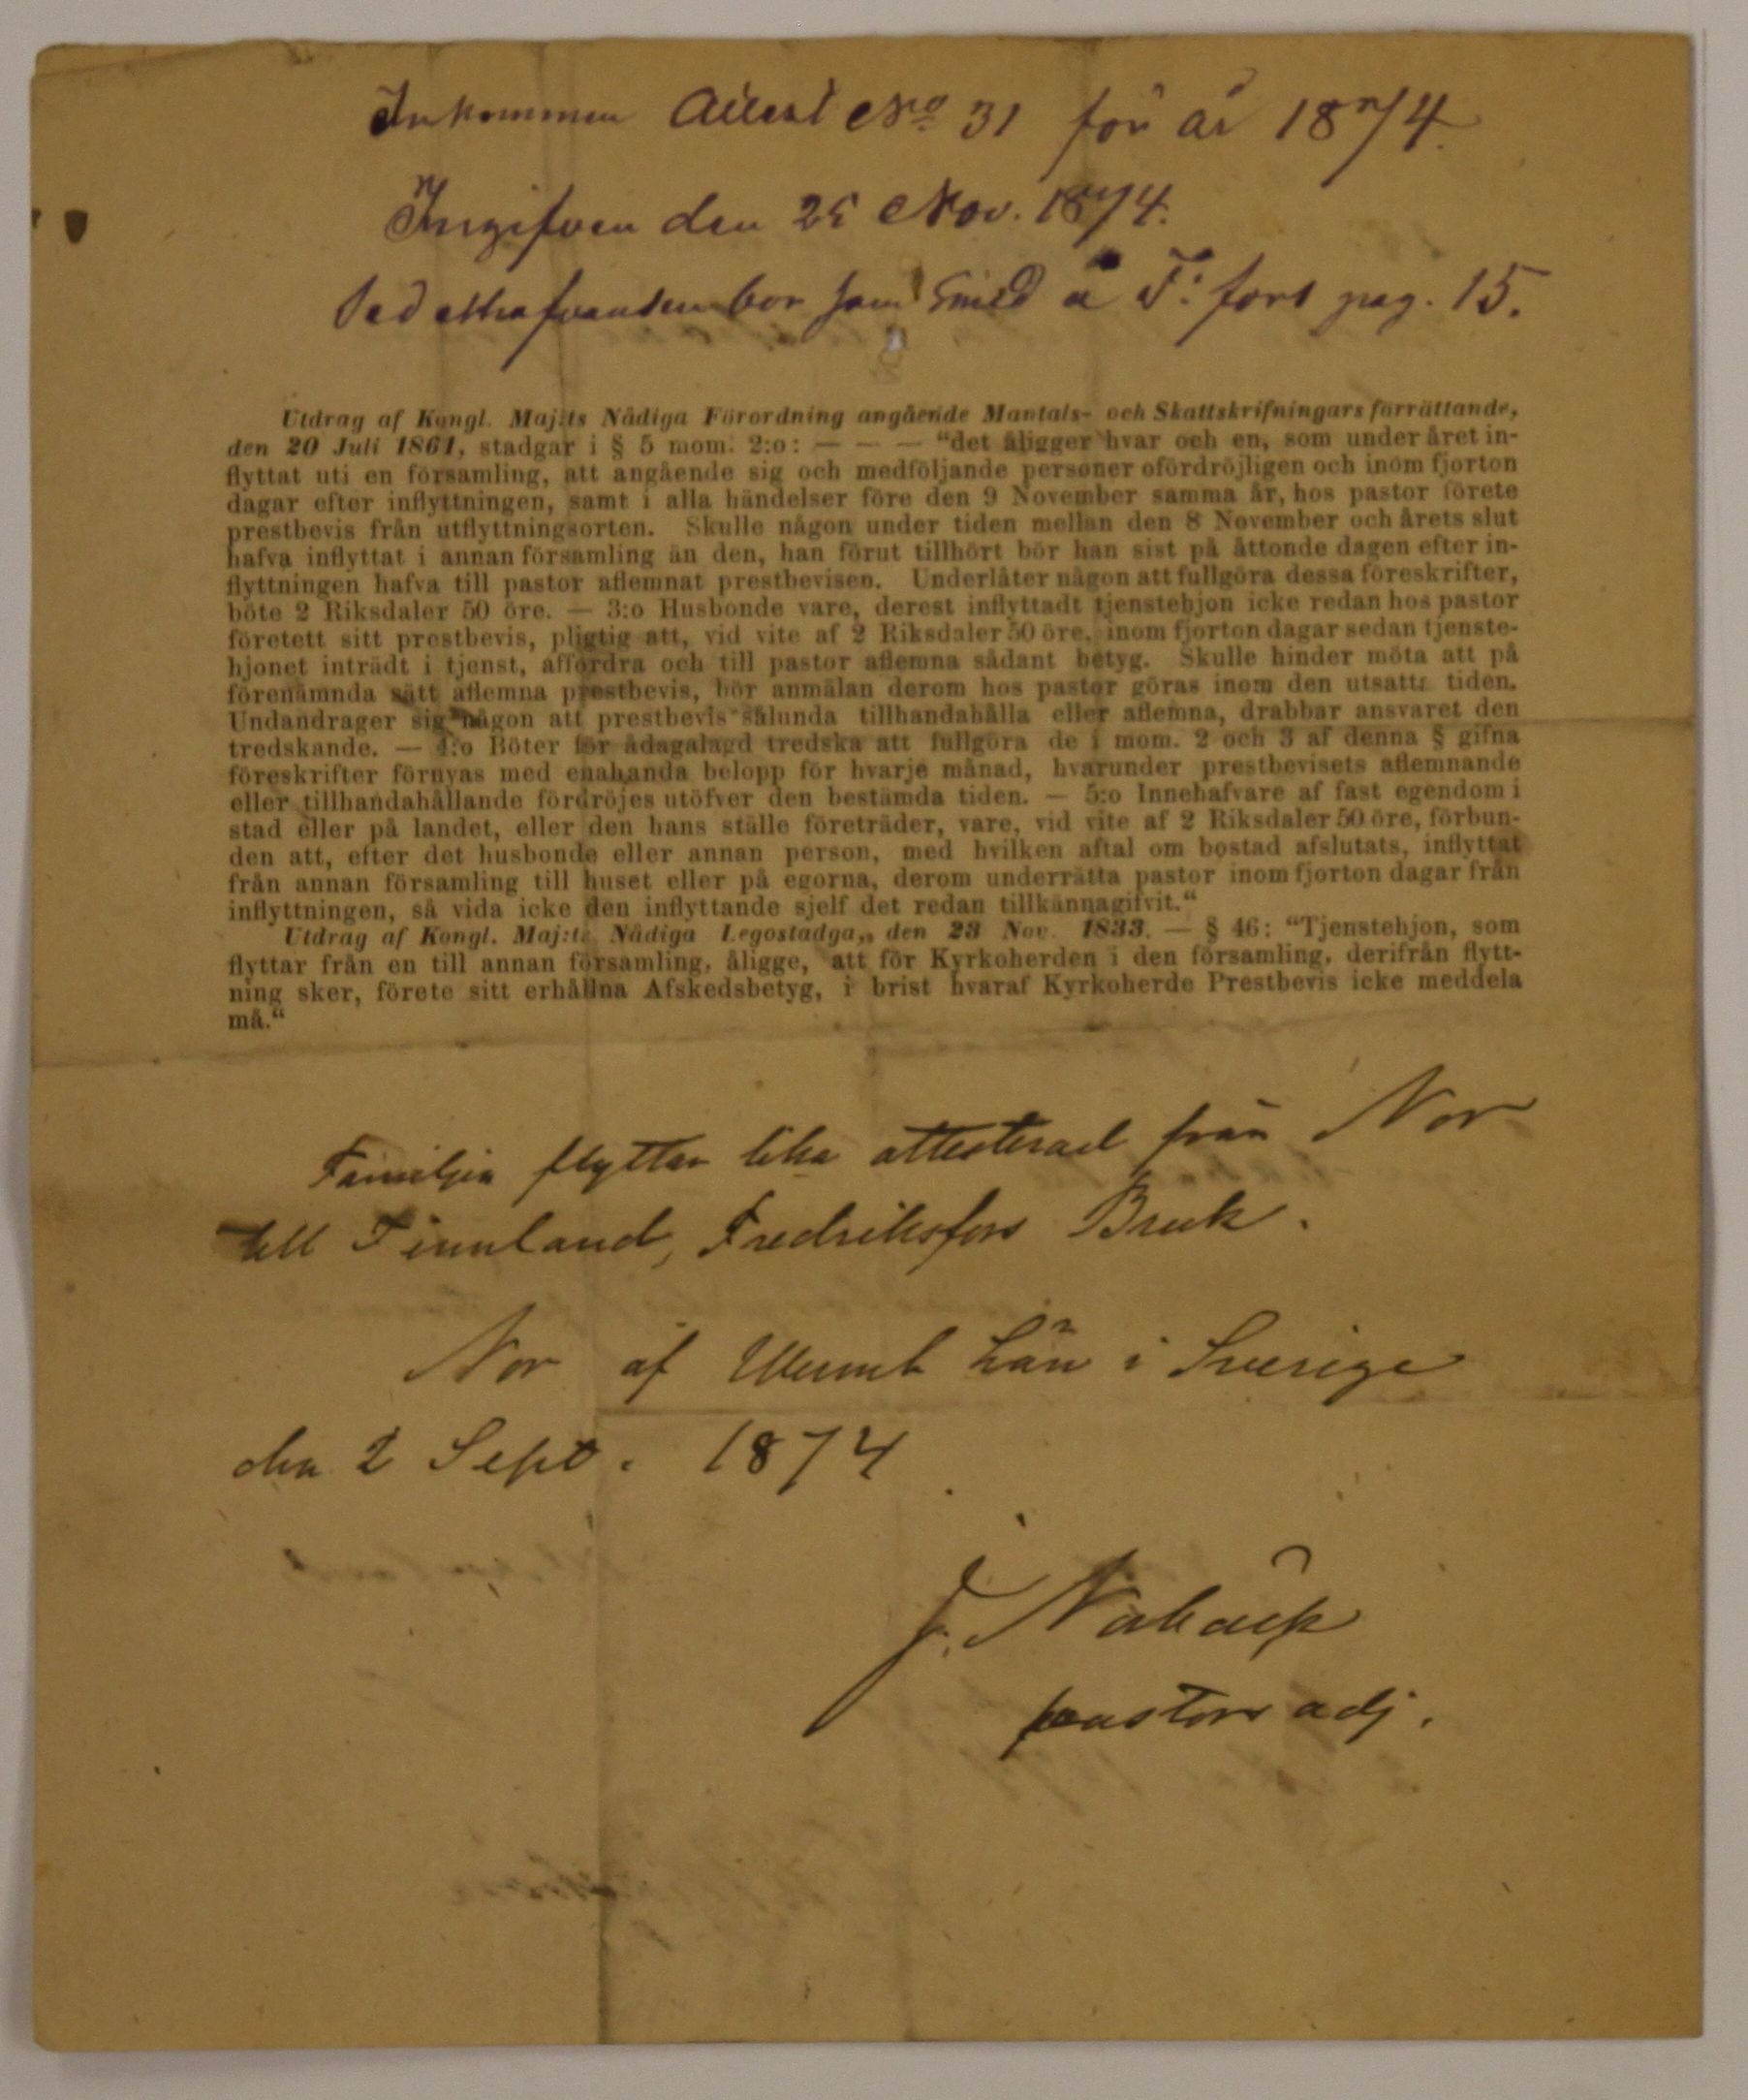 Inkommen Attest No 31 för år 1874.
Ingifven den 25 Nov. 1874.
bor som Smed å F: fors pag. 15.
Utdrag af Kongl. Maj:ts Nådiga Förordning angående Mantals- och Skattskrifningars förrättande,
den 20 Juli 1861, stadgar i § 5 mom. 2:o: — — — “det åligger hvar och en, som under året in-
flyttat uti en församling, att angående sig och medföljande personer ofördröjligen och inom fjorton
dagar efter inflyttningen, samt i alla händelser före den 9 November samma år, hos pastor förete
prestbevis från utflyttningsorten. Skulle någon under tiden mellan den 8 November och årets slut
hafva inflyttat i annan församling än den, han förut tillhört bör han sist på åttonde dagen efter in-
flyttningen hafva till pastor aflemnat prestbevisen. Underlåter någon att fullgöra dessa föreskrifter,
böte 2 Riksdaler 50 öre. — 3:o Husbonde vare, derest inflyttadt tjenstehjon icke redan hos pastor
företett sitt prestbevis, pligtig att, vid vite af 2 Riksdaler 50 öre, inom fjorton dagar sedan tjenste-
hjonet inträdt i tjenst, affordra och till pastor aflemna sådant betyg. Skulle hinder möta att på
förenämnda sätt aflemna prestbevis, bör anmälan derom hos pastor göras inom den utsatta tiden.
Undandrager sig någon att prestbevis sålunda tillhandahålla eller aflemna, drabbar ansvaret den
tredskande. — 4:o Böter för ådagalagd tredska att fullgöra de i mom. 2 och 3 af denna § gifna
föreskrifter förnyas med enahanda belopp för hvarje månad, hvarunder prestbevisets aflemnande
eller tillhandahållande fördröjes utöfver den bestämda tiden. — 5:o Innehafvare af fast egendom i
stad eller på landet, eller den hans ställe företräder, vare, vid vite af 2 Riksdaler 50 öre, förbun-
den att, efter det husbonde eller annan person, med hvilken aftal om bostad afslutats, inflyttat
från annan församling till huset eller på egorna, derom underrätta pastor inom fjorton dagar från
inflyttningen, så vida icke den inflyttande sjelf det redan tillkännagifvit.“
Utdrag af Kongl. Maj:ts Nådiga Legostadga,, den 23 Nov. 1833. — § 46: “Tjenstehjon, som
flyttar från en till annan församling, åligge, att för Kyrkoherden i den församling, derifrån flytt-
ning sker, förete sitt erhållna Afskedsbetyg, i brist hvaraf Kyrkoherde Prestbevis icke meddela
må.“
Familjen flyttar lika attesterad från Nor
till Finnland, Fredriksfors Bruk.
Nor af Werml. Län i Sverige
den 2 Sept. 1874
J.
pastors adj.